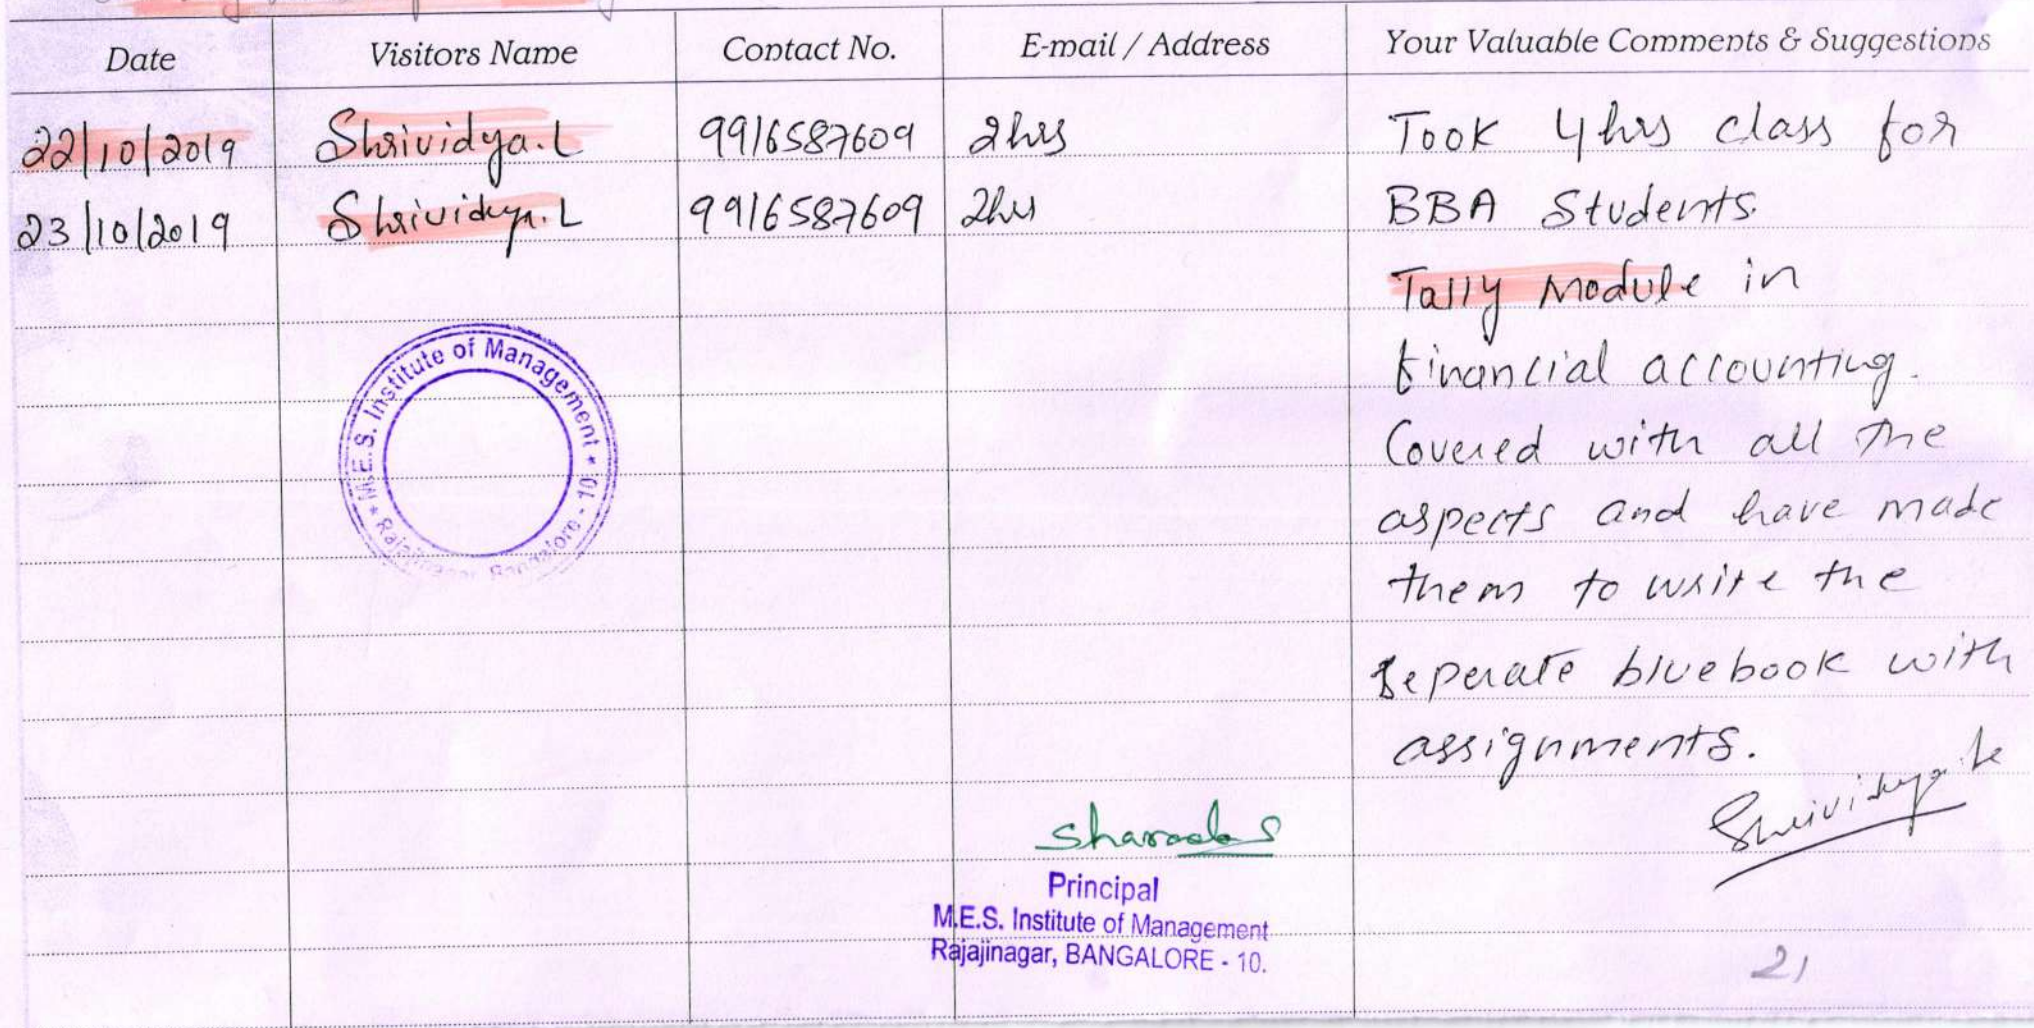 Date Visitors Name Contact No. E-mail / Address Your Valuable Comments & Suggestions
22/10/2019 Shrividya.L 9916587609 2hrs Took 4hrs class for
23/10/2019 Shrividya.L 9916587609 2hrs BBA Students.
Tally Module in
financial accounting.
Covered with all the
aspects and have made
them to write the
seperate bluebook with
assignments.
Shrividya L
* M.E.S. Institute of Management *
Rajajinagar Bangalore - 10.
Sharada S
Principal
M.E.S. Institute of Management
Rajajinagar, BANGALORE - 10.
21